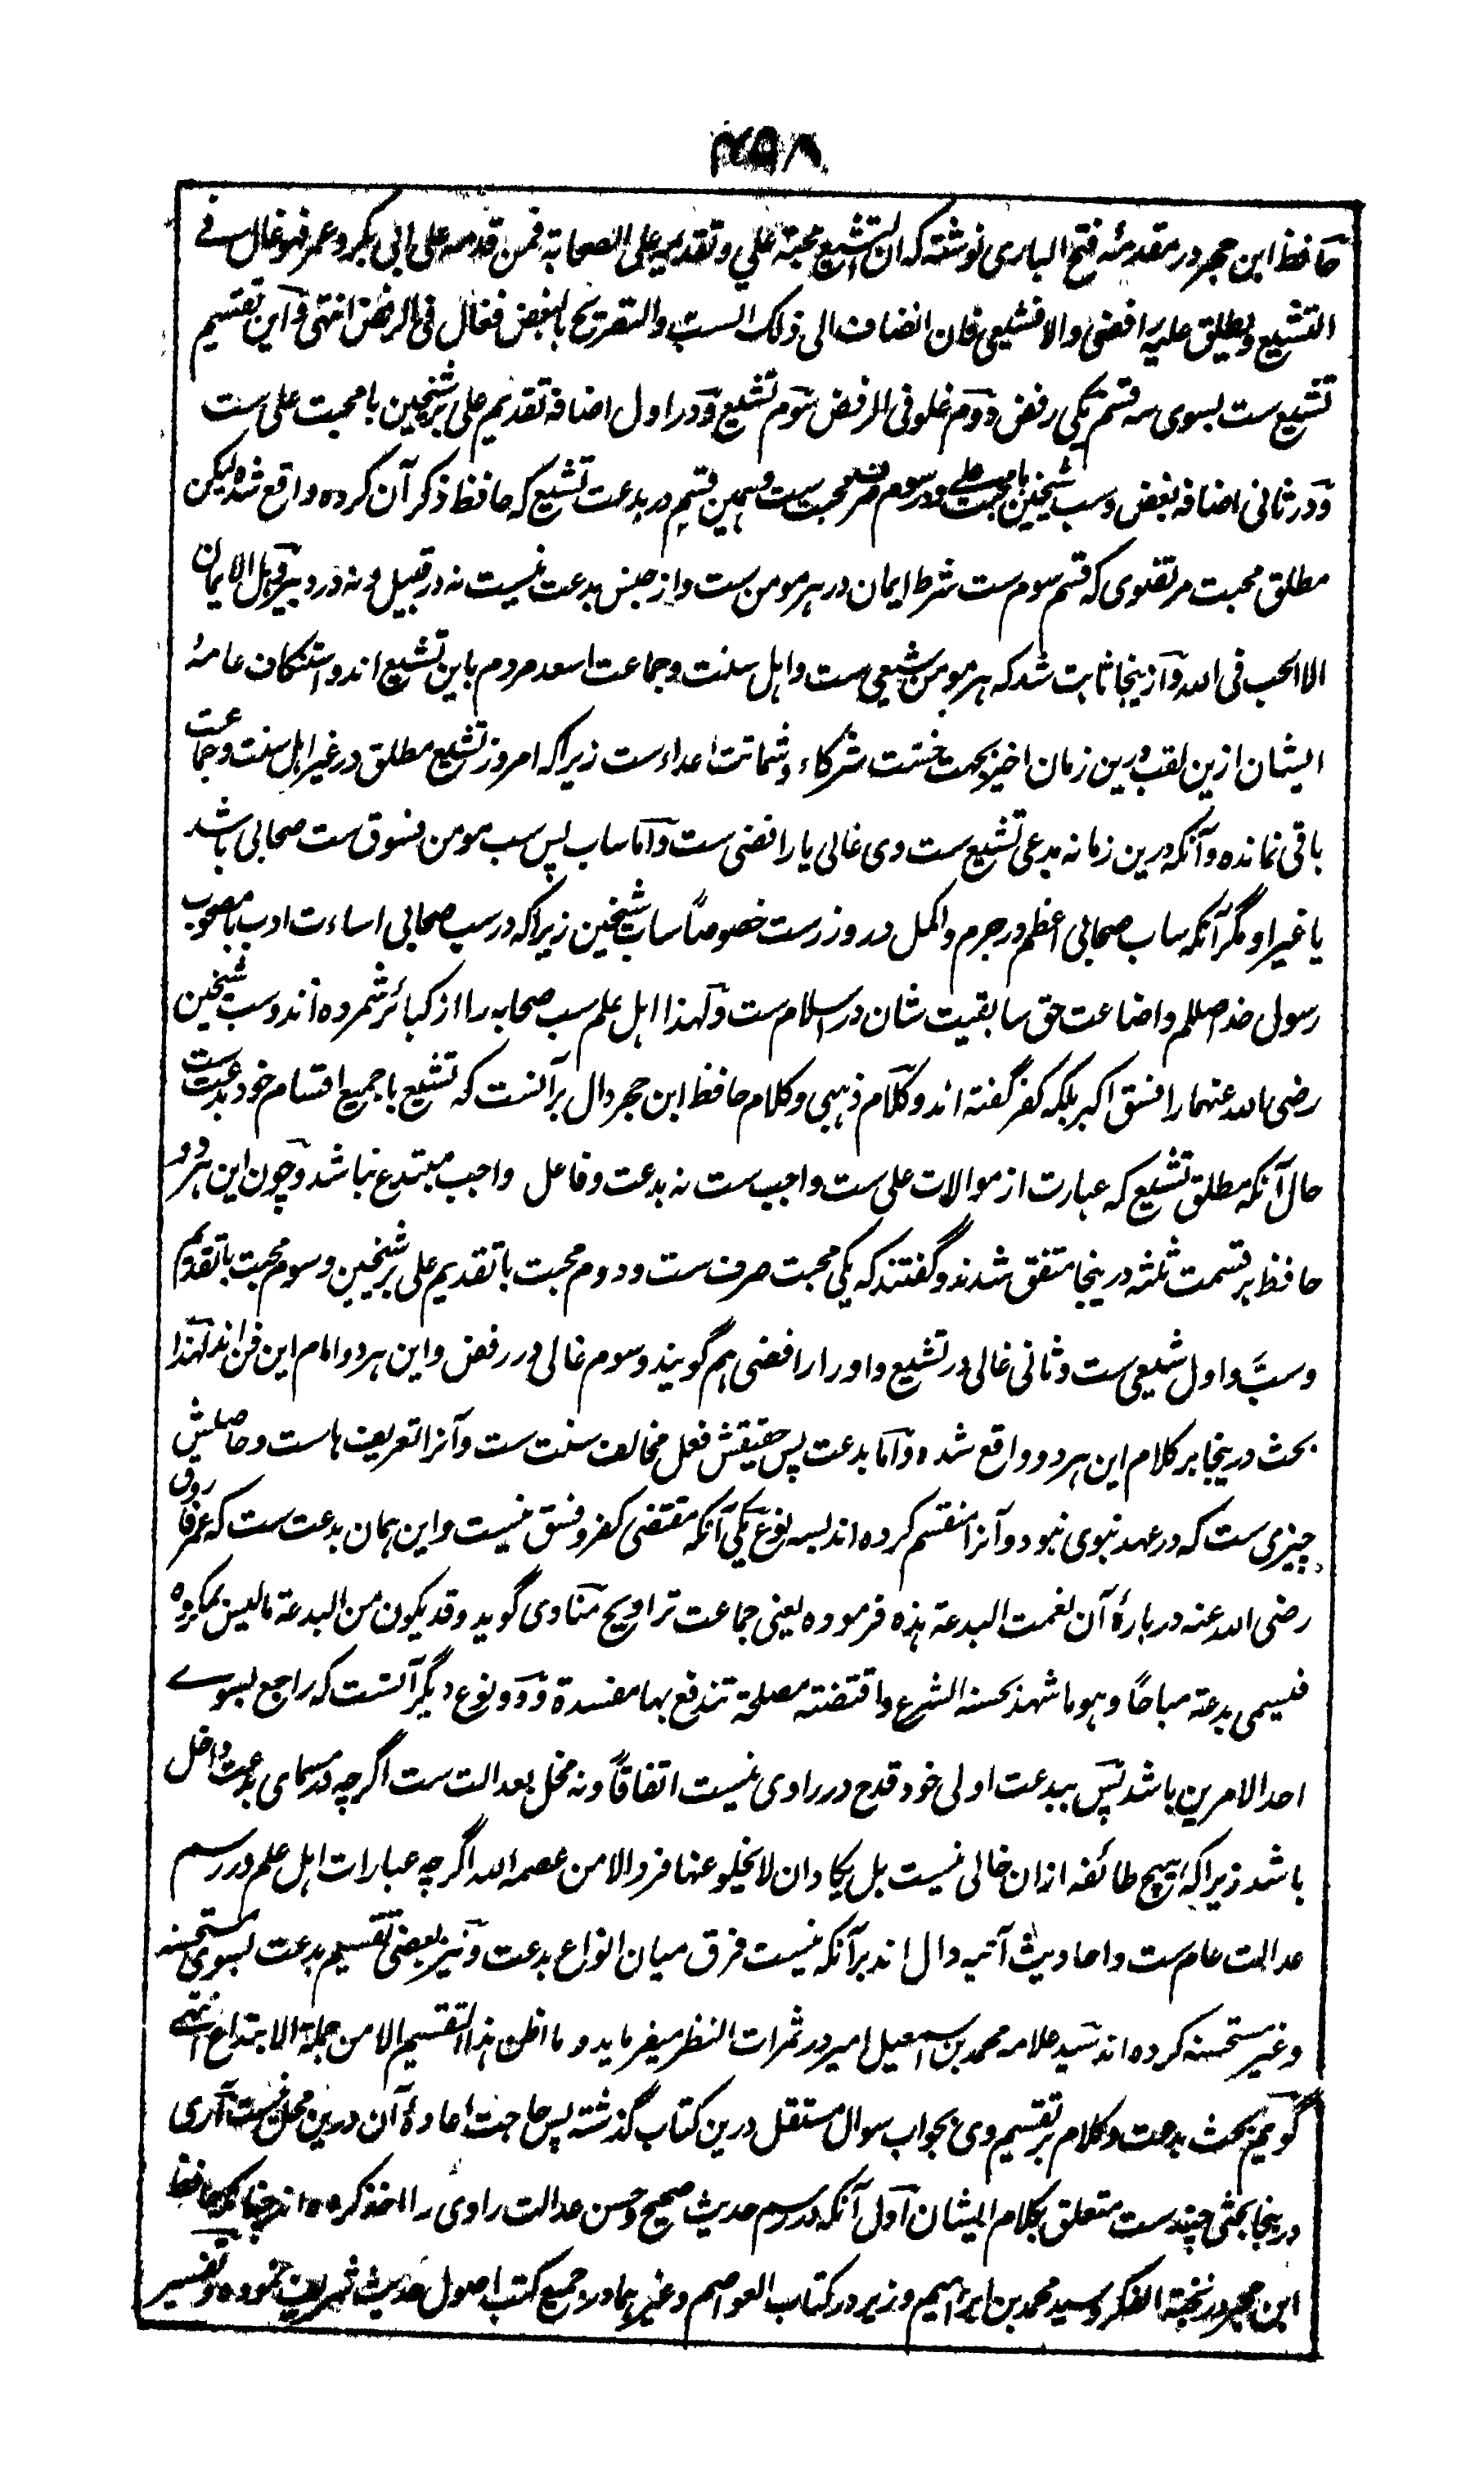 ۲۵۸
حافظ ابن حجر در مقدمهٔ فتح الباری نوشته که ان التشیع محبة علی و تقدیمه علی الصحابة فمن قدمه علی ابی بکر و عمر فهو غال فی
التشیع و یطلق علیه رافضی والا فشیعی فان انضاف الی ذلک السب والتصریح بالبغض فغال فی الرفض انتهی و این تقسیم
تشیع ست بسوی سه قسم یکی رفض دوم غلو فی الرفض سوم تشیع و در اول اضافه تقدیم علی بر شیخین با محبت علی ست
و در ثانی اضافه بغض و سب شیخین با محبت علی و در سوم صرف محبت ست و همین قسم در بدعت تشیع که حافظ ذکر آن کرده واقع شده لیکن
مطلق محبت مرتضوی که قسم سوم ست شرط ایمان در هر مومن ست و از جنس بدعت نیست نه در قبیل و نه در دبیر و هل الایمان
الا الحب فی الله و ازینجا ثابت شد که هر مومن شیعی ست و اهل سنت و جماعت اسعد مردم باین تشیع اند و استنکاف عامهٔ
ایشان ازین لقب درین زمان اخیر بجهت خشت شرکاء و شماتت اعداء ست زیرا که امروز تشیع مطلق در غیر اهل سنت و جماعت
باقی نمانده و آنکه درین زمانه مدعی تشیع ست وی غالی یا رافضی ست و اما ساب پس سب مومن فسوق ست صحابی باشد
یا غیر او مگر آنکه ساب صحابی اعظم در جرم و اکمل در وزر ست خصوصاً ساب شیخین زیرا که در سب صحابی اساءت ادب با مصحوب
رسول خدا صللم و اضاعت حق سابقیت شان در اسلام ست و لهذا اهل علم سب صحابه را از کبائر شمرده اند و سب شیخین
رضی الله عنهما را فسق اکبر بلکه کفر گفته اند و کلام ذهبی و کلام حافظ ابن حجر دال بر آنست که تشیع با جمیع اقسام خود بدعت ست
حال آنکه مطلق تشیع که عبارت از موالات علی ست واجب ست نه بدعت و فاعل واجب مبتدع نباشد و چون این هر دو
حافظ بر قسمت ثلثه درینجا متفق شدند و گفتند که یکی محبت صرف ست و دوم محبت با تقدیم علی بر شیخین و سوم محبت با تقدیم
و سبّ و اول شیعی ست و ثانی غالی در تشیع و او را رافضی هم گویند و سوم غالی در رفض و این هر دو امام این فن اند لهذا
بحث درینجا بر کلام این هر دو واقع شده و اما بدعت پس حقیقتش فعل مخالف سنت ست و آنرا تعریف هاست و حاصلش
چیزی ست که در عهد نبوی نبود و آنرا منقسم کرده اند بسه نوع یکی آنکه مقتضی کفر و فسق نیست و این همان بدعت ست که عمر فاروق
رضی الله عنه در بارهٔ آن نعمت البدعة هذه فرموده یعنی جماعت تراویح مناوی گوید و قد یکون من البدعة ما لیس بمکروه
فیسمی بدعة مباحاً و هو ما شهد بحسنه الشرع و اقتضته مصلحة تندفع بها مفسدة و دو نوع دیگر آنست که راجع بسوے
احد الامرین باشد پس ببدعت اولی خود قدح در راوی نیست اتفاقاً و نه مخل بعدالت ست اگرچه در مسمای بدعت داخل
باشد زیرا که هیچ طائفه ازان خالی نیست بل یکاد ان لا یخلو عنها فرد الا من عصمه الله اگرچه عبارات اهل علم در رسم
عدالت عام ست و احادیث آتیه دال اند بر آنکه نیست فرق میان انواع بدعت و نیز بعضی تقسیم بدعت بسوی مستحسنه
و غیر مستحسنه کرده اند سید علامه محمد بن اسمعیل امیر در ثمرات النظر میفرماید و ما اظن هذا التقسیم الا من جملة الابتداع انتهے
گویم بحث بدعت و کلام بر تقسیم وی بجواب سوال مستقل درین کتاب گذشته پس حاجت اعادهٔ آن درین محل نیست آری
درینجا بحثی چند ست متعلق بکلام ایشان اول آنکه در رسم حدیث صحیح و حسن عدالت راوی را اخذ کرده اند چنانکه حافظ
ابن حجر در نخبة الفکر و سید محمد بن ابراهیم وزیر در کتاب العواصم و غیرهما در جمیع کتب اصول حدیث تعریف نموده و تفسیر